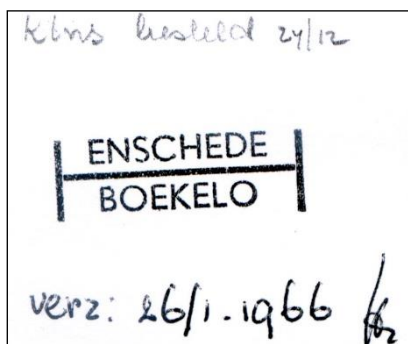 besteld 24/12
ENSCHEDE
BOEKELO
verz: 26/1.1966